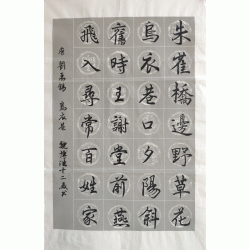 朱雀橋邊野草花
烏衣巷口夕陽斜
舊時王謝堂前燕
飛入尋常百姓家
唐 劉禹錫 烏衣巷 魏 十二歲书